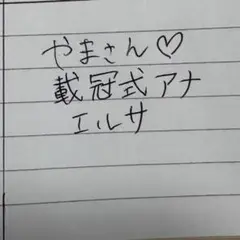 やまさん♡
載冠式アナ
エルサ